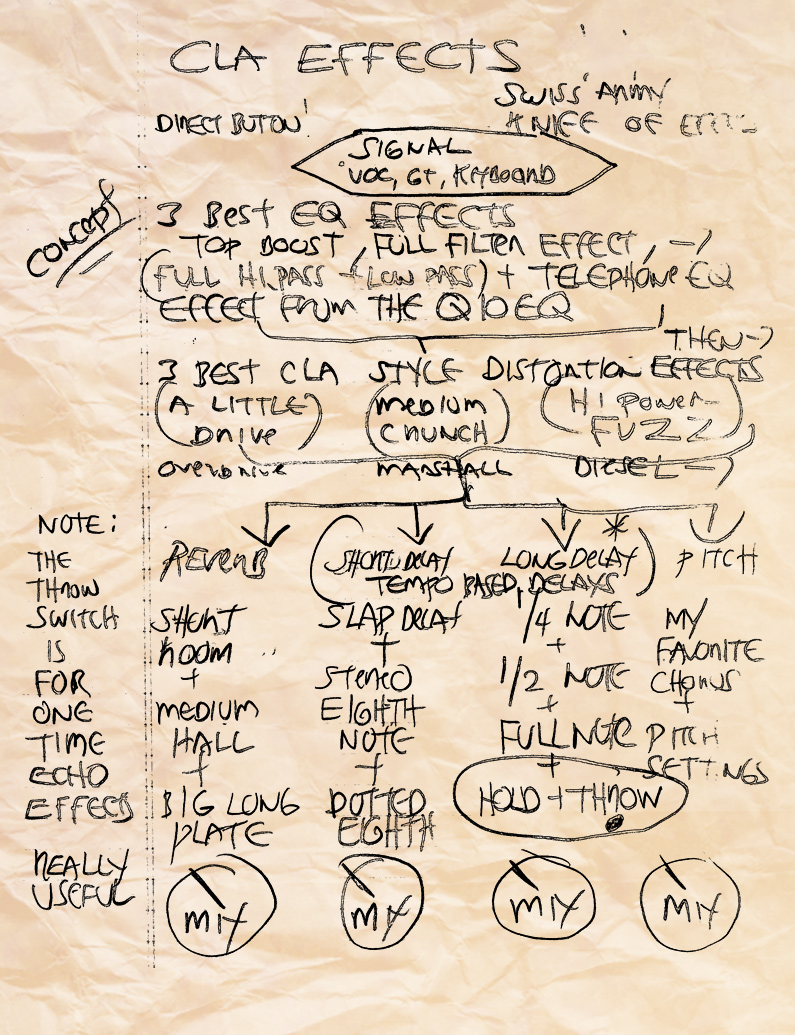 CLA EFFECTS
SWISS ARMY
DIRECT BUTTON!
KNIFE OF
SIGNAL
VOC, GT, KEYBOARD
CONCEPT
3 BEST EQ EFFECTS
TOP BOOST, FULL FILTER EFFECT, →
(FULL HI.PASS + LOW PASS) + TELEPHONE EQ
EFFECT FROM THE Q10 EQ
THEN→
3 BEST CLA STYLE DISTORTION EFFECTS
(A LITTLE DRIVE) (MEDIUM CRUNCH) (HI POWER-FUZZ)
OVERDRIVE MARSHALL DIESEL→
NOTE:
THE
THROW
SWITCH
IS
FOR
ONE
TIME
ECHO
EFFECTS
REALLY
USEFUL
REVERB
SHORT
ROOM
+
MEDIUM
HALL
+
BIG LONG
PLATE
MIX
(SHORT DELAY LONG DELAY*)
TEMPO BASED DELAYS
SLAP DELAY
+
STEREO
EIGHTH
NOTE
+
DOTTED
EIGHTH
MIX
1/4 NOTE
+
1/2 NOTE
+
FULL NOTE
+
HOLD + THROW
MIX
PITCH
MY
FAVORITE
CHORUS
+
PITCH
SETTINGS
MIX